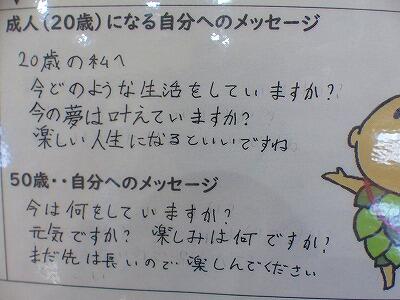 成人(20歳)になる自分へのメッセージ
20歳の私へ
今どのような生活をしていますか?
今の夢は叶えていますか?
楽しい人生になるといいですね
50歳・・自分へのメッセージ
今は何をしていますか?
元気ですか? 楽しみは何ですか?
まだ先は長いので楽しんでください